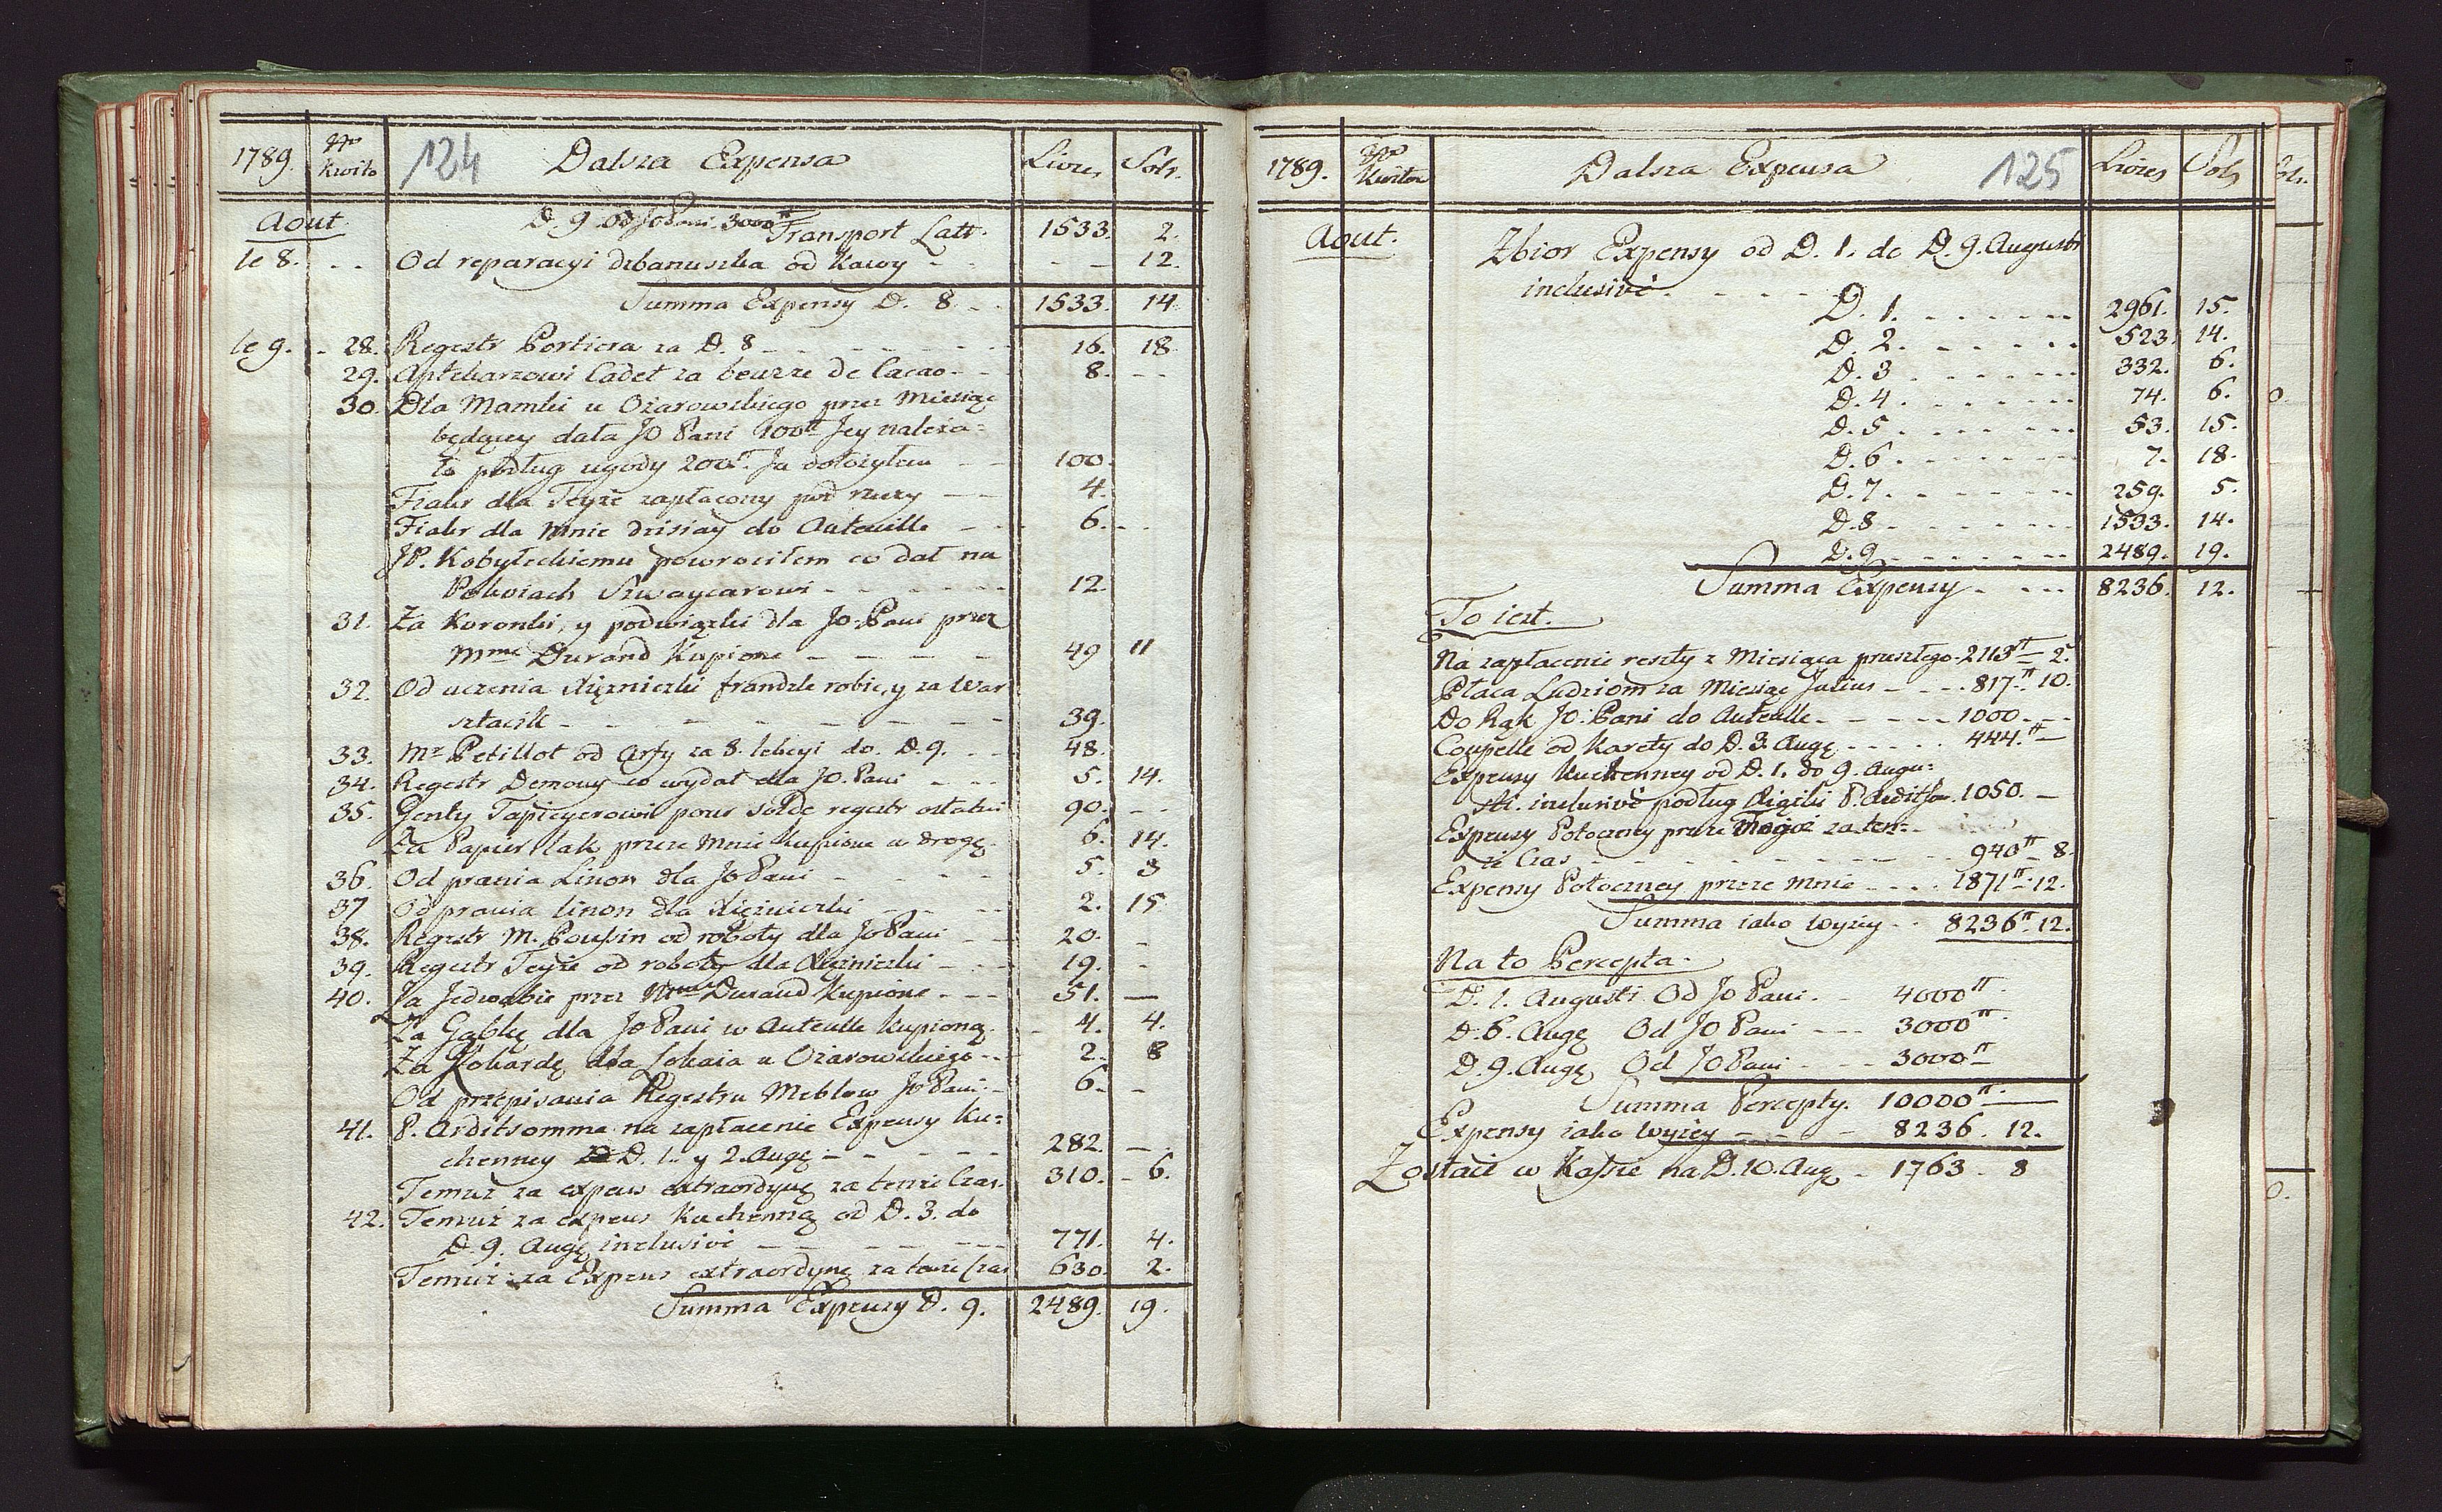 1789. Nro Kwito 124 Dalsza Expensa Livres Sols.
Aout D. 9 Od JO Pani 3000 tt Transport Latt. 1533. 2.
le 8. . . Od reparacyi dzbanuszka od Kawy - - - - 12.
Summa Expensy D. 8. . . 1533. 14.
le 9. . 28. Regestr Portiera za D. 8 - - - 16. 18
29. Aptekarzowi Cadet za beurre de Cacao - - 8. - -
30. Dla Mamki u Ożarowskiego przez Miesiąc
będącey dała JO Pani 100 tt Jey należa=
ło podług ugody 200 tt Ja dołożyłem - - 100.
Fiakr dla Teyże zapłacony pod rzeczy - - 4.
Fiakr dla mnie dzisiay do Auteuille - - 6. - -
JP. Kobyłeckiemu powrociłem co dał na
Pokoiach Szwaycarowi - - - - - 12.
31. Za Koronki, y podwiązki dla Jo Pani przez
Mme Durand Kupione - - - - 49 11
32. Od uczenia Xiężniczki frandzle robic, y za War
sztacik - - - - - - - 39.
33. Mr Petillot od Arfy za 8. lekcyi do D. 9. - - 48.
34. Regestr Demowy co wydał dla JO. Pani - - 5. 14.
35. Genty Tapicyerowi pour solde regestr ostatni 90. - -
Za Papier lak przeze mnie kupione w drogę. 6. 14.
36. Od prania Linon dla JO Pani - - - - 5. 3
37 Od prania linon dla Xiężniczki - - - 2. 15
38. Regestr M. Poussin od roboty dla Jo Pani - - 20. -
39. Regestr Teyże od roboty dla Xiężniczki - - - 19. -
40. Za Jedwabie przez Mme Durand Kupione - - - 51. —
Za Gąbkę dla Jo Pani w Auteulle kupioną. - 4. 4.
Za Kokardę dla Lokaia u Ożarowskiego - - 2. 8
Od przepisania Regestru Meblow Jo Pani. - 6. -
41. P. Arditsomma na zapłacenie Expensy Ku=
chenney D. 1. y 2. Augę - - - - - 282. —
Temuż za expens extraordynę za tenże Czas. 310. - 6.
42. Temuż za expens Kuchenną od D. 3. do
D. 9. Augę inclusive - - - - - 771. 4.
Temuż za Expens extraordynę za tenże Czas 630. 2.
Summa Expensy D. 9. 2489. 19.
1789. Nro Kwitow Dalsza Expensa 125 Livres Sols
Aout. Zbior Expensy od D. 1. do D. 9. Augusti
inclusivè. - - - -
D. 1. - - - - - 2961. 15.
D. 2. - - - - - 523. 14.
D. 3 - - - - - 332. 6.
D. 4. - - - - - 74. 6.
D. 5 - - - - - 53. 15.
D. 6. - - - - - 7. 18.
D. 7. - - - - - 259. 5.
D. 8 - - - - - 1533. 14.
D. 9 - - - - - 2489. 19.
Summa Expensy - - - - 8236. 12.
To iest.
Na zapłacenie reszty z Miesiąca przeszłego - 2113 tt — 2.
Płaca Ludziom za Miesiąc Julius - - - 817. tt 10.
Do Rąk JO: Pani do Auteulle - - - - - 1000. - -
Coupelle od Karety do D. 3. Augę - - - - - 444. tt —
Expensy Kuchenney od D. 1. do 9. Augu=
sti. inclusivè podług Xiążki P. Arditsom. 1050. —
Expensy Potoczney przez Tegoż za ten=
że Czas - - - - - - - 940 tt - 8.
Expensy Potoczney przeze mnie - - - 1871 tt - 12.
Summa iako wyżey - - 8236 tt. 12.
Na to Percepta.
D. 1. Augusti Od Jo Pani. - 4000 tt.
D. 6. Augę Od JO Pani - - - 3000 tt.
D. 9. Augę Od JO Pani - - - 3000 tt
Summa Percepty. 10000 tt. —
Expensy iako wyżey - - - 8236. 12.
Zostaie w Kassie na D. 10. Aug - 1763 - 8